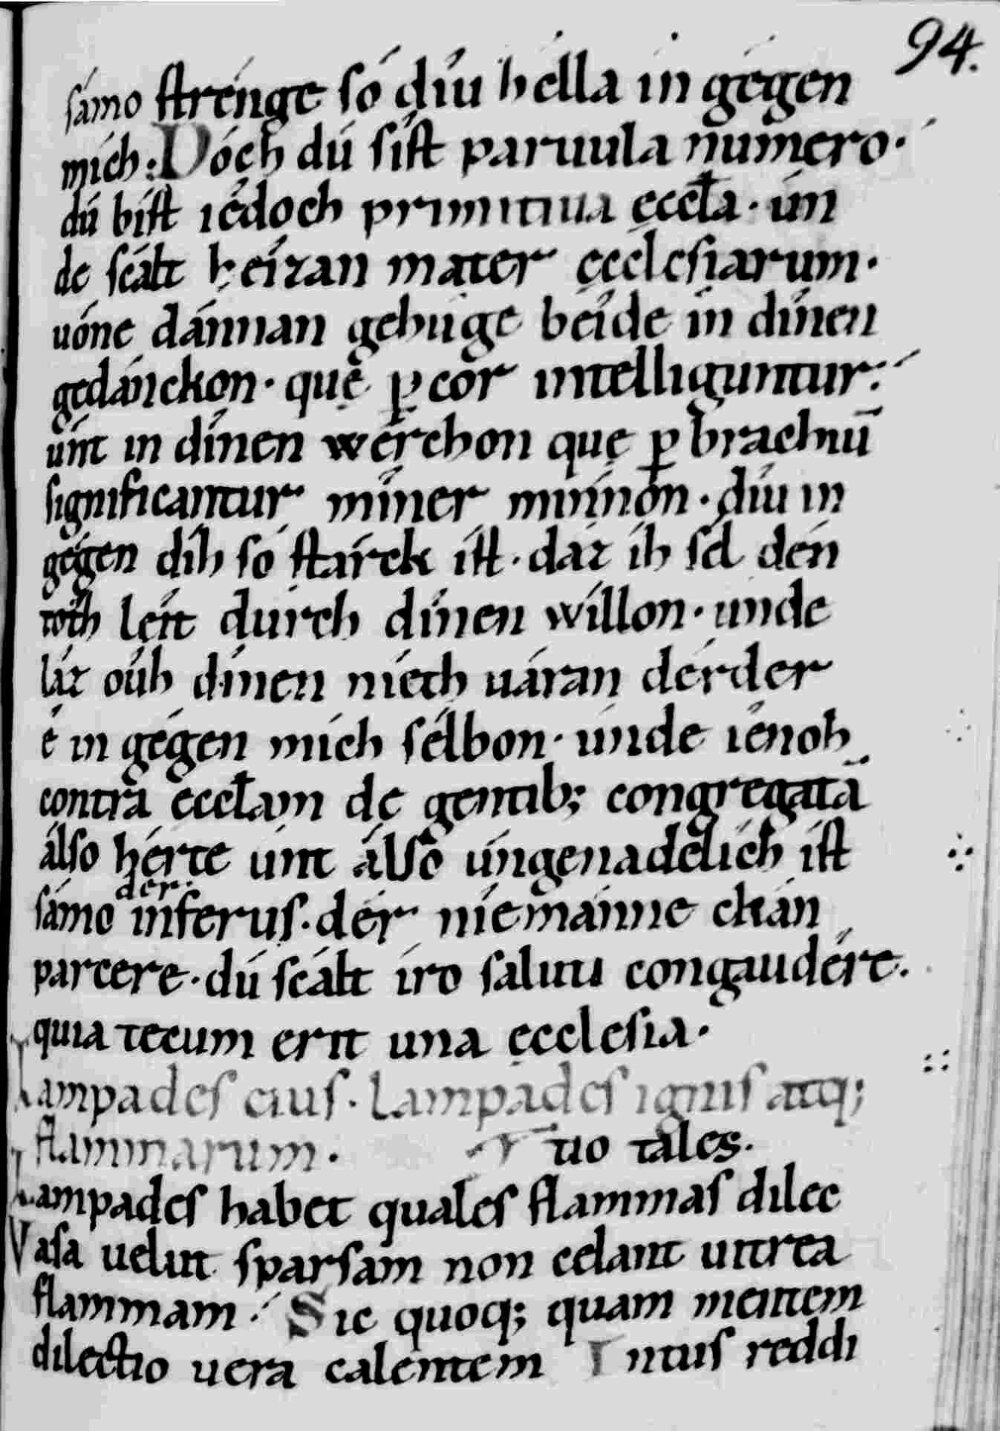 94.
sámo strénge só díu hélla in gégen
mích: Dóch dú síst paruula numero.
dú bíst iédoch primitiua ęccła. ún
de scált héizan mater ęcclesiarum.
uóne dánnan gehúge béide in dínen
gedánckon. quę p̱ cor intelliguntur:
únt in dínen wérchon quę p̱ brachiū
significantur míner mínnon. díu in
gégen díh só stárck íst. daz ih sél den
tóth léit durch dínen willon. unde
láz oúh dínen niéth uáran dérder
é in gégen mích sélbon. únde iénoh
contra ęccłam dę gentib; congregatā
álso hérte únt álso úngenadelích íst
sámo der inferus. dér niemánne chán
parcere. dú scált íro saluti congaudére.
quia tecum erit una ęcclesia.
Lampades eius. Lampades ignis atq;
flammarum. Tuo tales.
Lampades habet quales flammas dilec
Vasa uelut sparsam non celant uitrea
flammam: Sic quoq; quam mentem
dilectio uera calentem Intus reddi